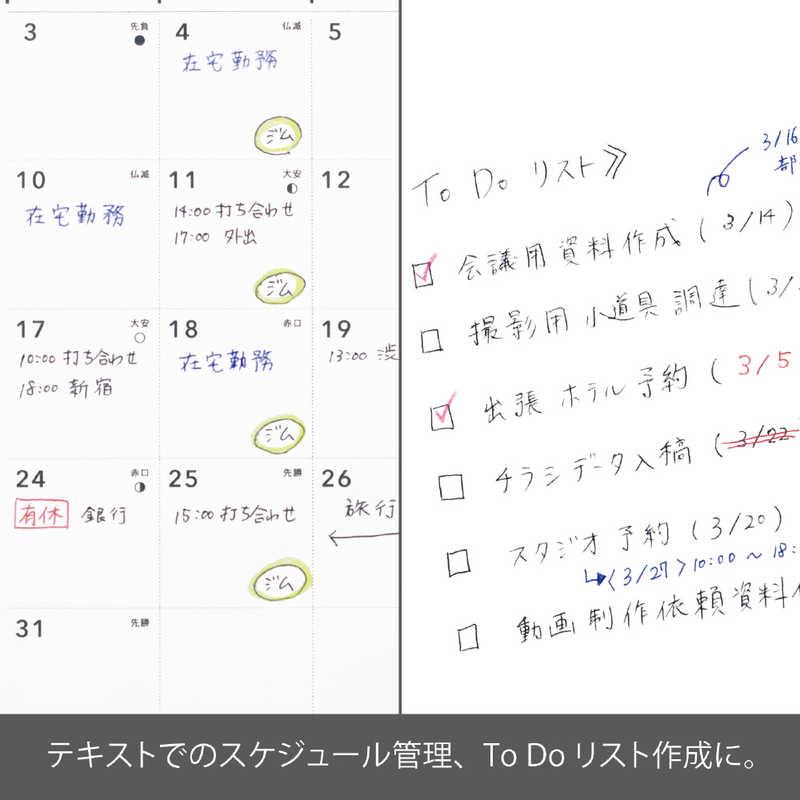 3 先負
4 仏滅
5
在宅勤務
ジム
10 仏滅
11 大安
12
在宅勤務
14:00 打ち合わせ
17:00 外出
ジム
17 大安
18 赤口
19
10:00 打ち合わせ
18:00 新宿
在宅勤務
13:00 渋
ジム
24 赤口
25 先勝
26
有休 銀行
15:00 打ち合わせ
旅行
ジム
31 先勝
3/16
部
To Do リスト》
会議用資料作成 (3/14)
撮影用小道具調達 (3/
出張ホテル予約 (3/5
チラシデータ入稿 (3/22
スタジオ予約 (3/20)
〈3/27〉10:00 〜 18:
動画制作依頼資料作
テキストでのスケジュール管理、To Do リスト作成に。